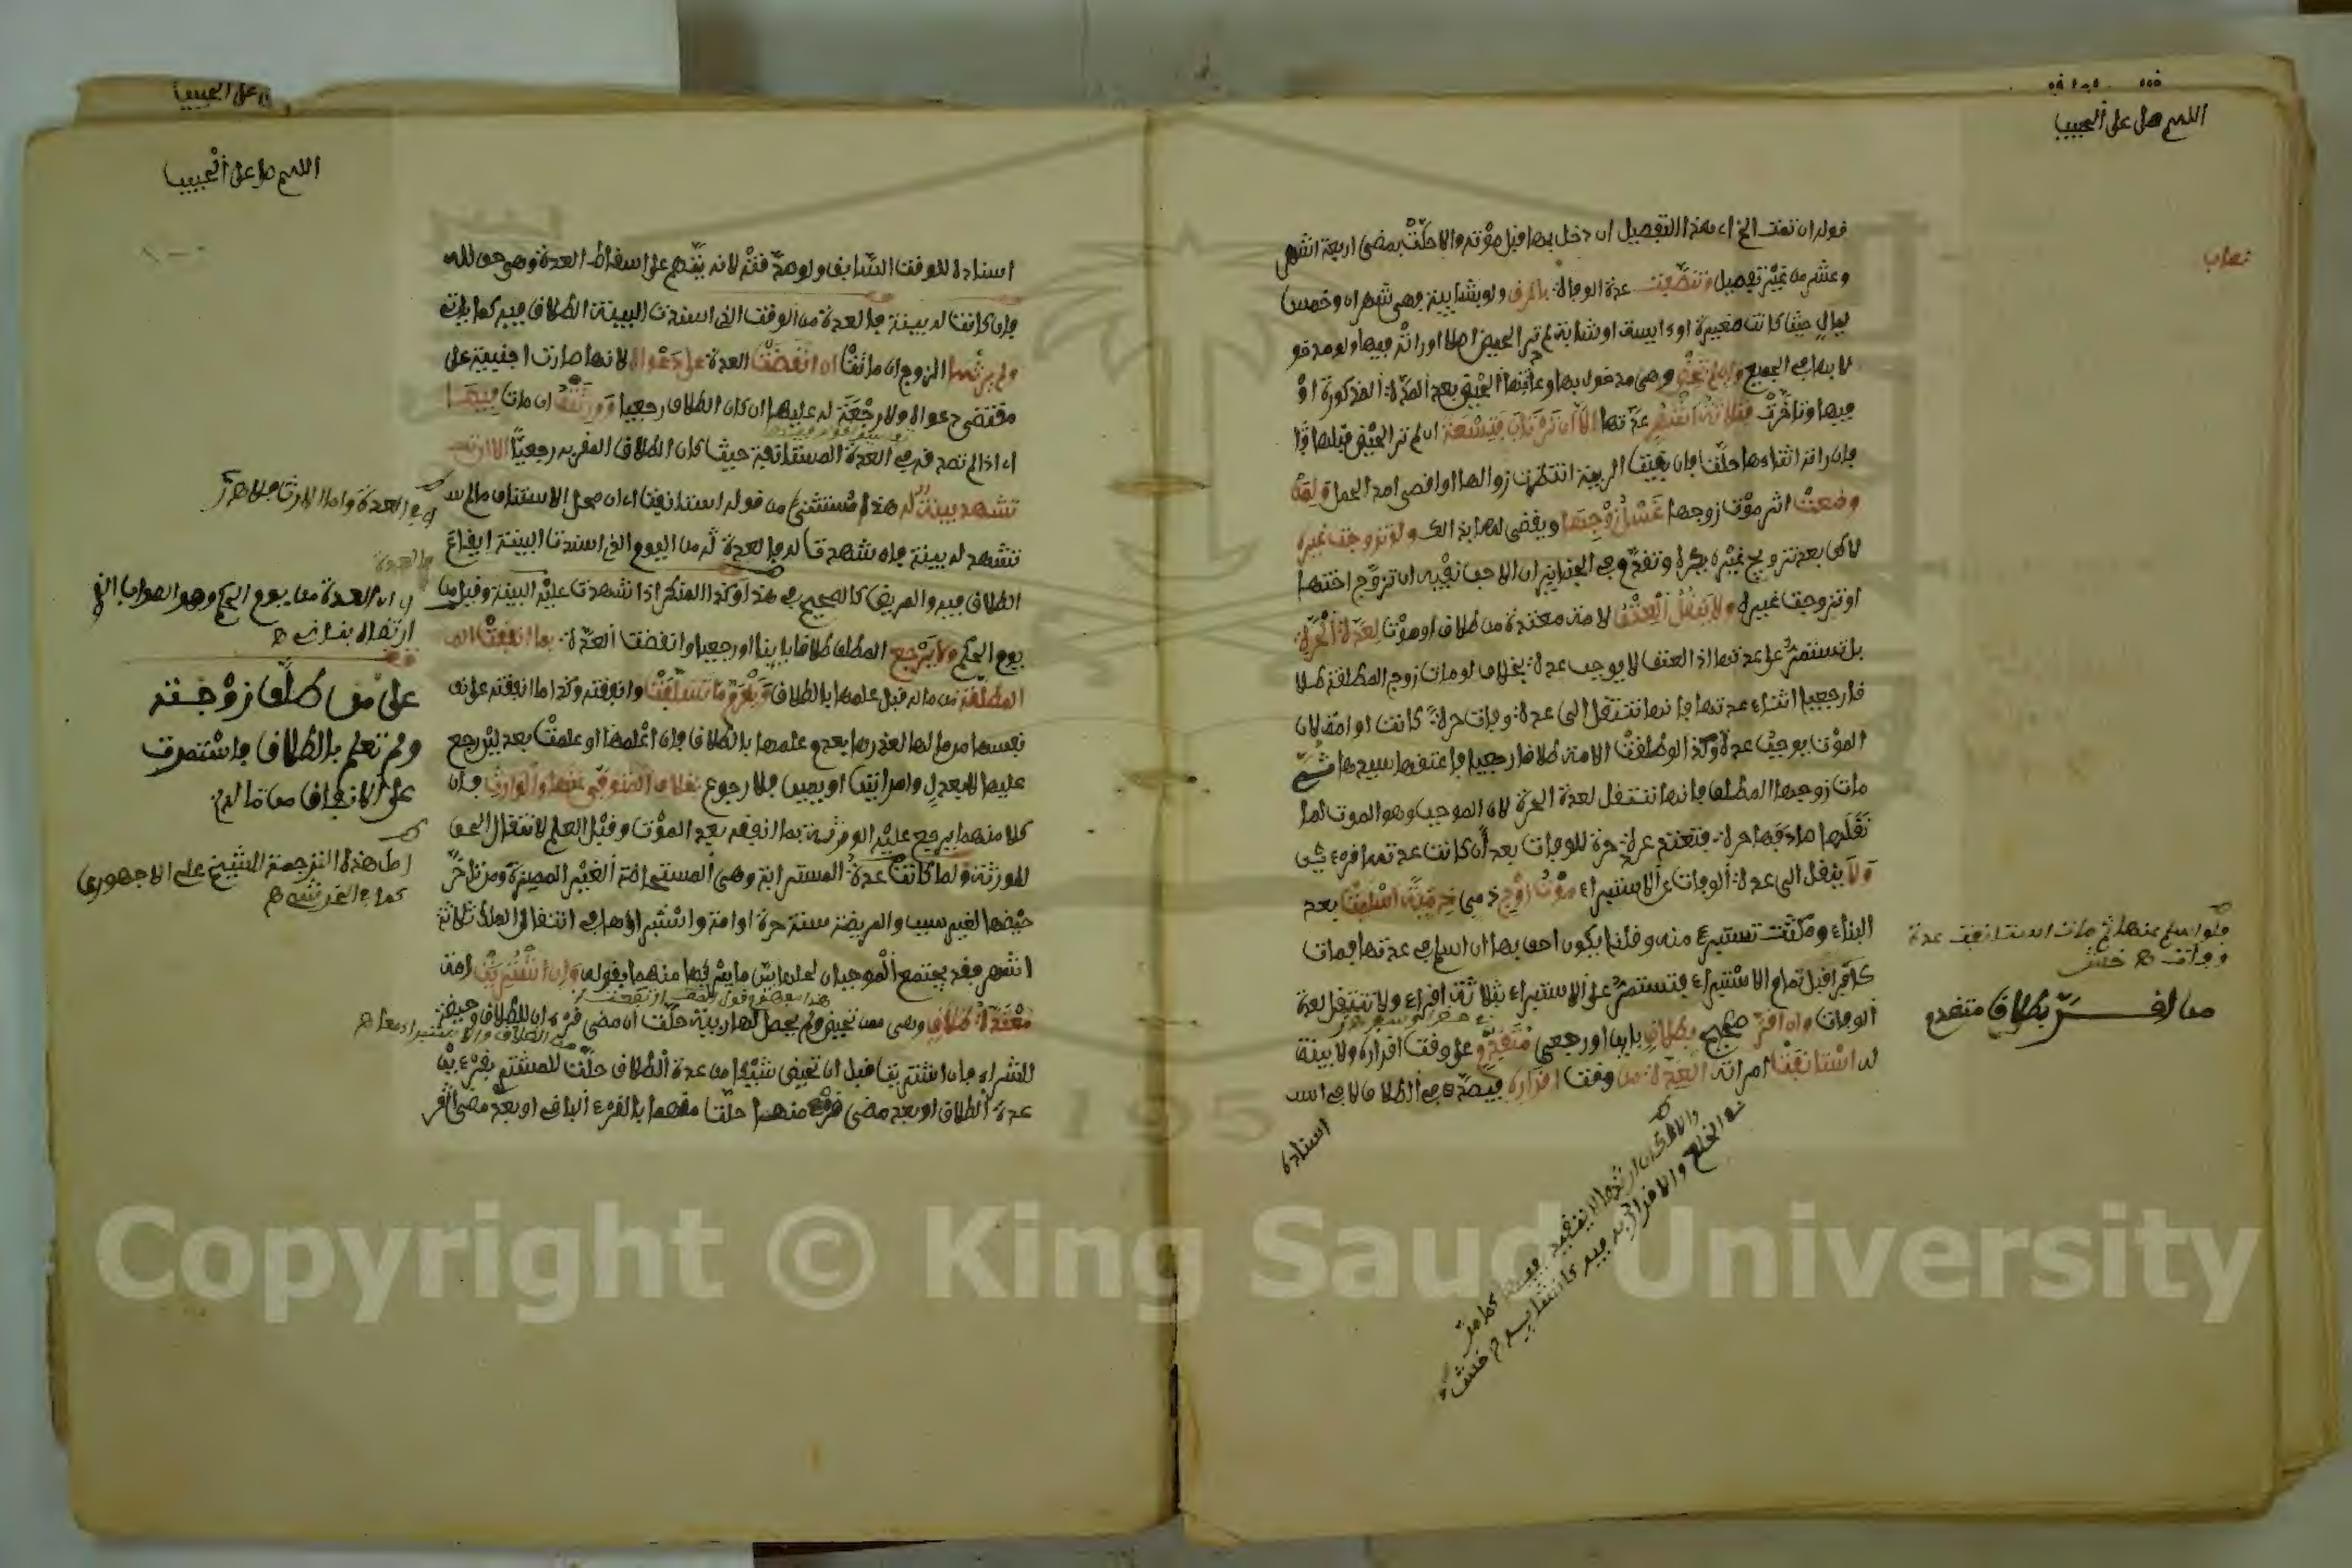 اللهم صل على الحبيب
قوله ان تمت الخ اى هذا التفصيل ان دخل بها قبل موته والا حلت بمضى اربعة اشهر
وعشر من غير تفصيل وتنصفت عدة الوفاة بالرق ولو بشايبة وهى شهران وخمس
ليال حيث كانت صغيرة او ءايسة او شابة لم تر الحيض اصلا او راته فيها ولو مدخو
لا بها فى الجميع وان لم تحض وهى مدخول بها وعادتها الحيض بعد المدة المذكورة او
فيها وتاخرت فثلاثة اشهر عدتها الا ان ترتاب فتسعة ان لم تر الحيض قبلها
فان راته اثناءها حلت فان بقيت الريبة انتظرت زوالها او اقصى امد الحمل ولمن
وضعت اثر موت زوجها غسل زوجها ويقضى لها بذالك ولو تزوجت غيره
لاكن بعد تزويج غيره يكره وتقدم فى الجنايز ان الاحب نفيه ان تزوج اختها
او تزوجت غيره ولا ينقل العتق لامة معتدة من طلاق او موت لعدة الحرة
بل تستمر على عدتها اذ العتق لا يوجب عدة بخلاف لو مات زوج المطلقة طلا
قا رجعيا اثناء عدتها فانها تنتقل الى عدة وفات حرة كانت او امة لان
الموت يوجب عدة وكذا لو طلقت الامة طلاقا رجعيا فاعتقها سيدها ثم
مات زوجها المطلق فانها تنتقل لعدة الحرة لان الموجب وهو الموت لما
نقلها صادفها حرة فتعتد عدة حرة للوفات بعد ان كانت عدتها قرءين
ولا ينقل الى عدة الوفات عن الاستبراء موت زوج ذمى ذمية اسلمت بعد
البناء ومكثت تستبرئ منه وقلنا يكون احق بها ان اسلم فى عدتها فمات
كافرا قبل تمام الاستبراء فتستمر على الاستبراء بثلاثة اقراء ولا تنتقل لعدة
الوفات وان اقر صحيح بطلاق باين او رجعى متقدم على وقت اقراره ولا بينة
له استانفت امراته العدة من وقت اقراره فيصدق فى الطلاق لا فى اسـ
اسناده
فلو اسلم منها ثم مات استانفت عدة
وفات ه خش
من اقـــر بطلاق متقدم
اللهم صل على الحبيب
اسناده للوقت السابق ولو صدقته لانه يتهم على اسقاط العدة وهى حق لله
فان كانت له بينة فالعدة من الوقت الذى اسندت البينة الطلاق فيه كما ياتى
ولم يرثها الزوج ان ماتت ان انقضت العدة على دعواه لانها صارت اجنبية على
مقتضى دعواه ولا رجعة له عليها ان كان الطلاق رجعيا وورثته ان مات فيها
اى اذا لم تصدقه فى العدة المستانفة حيث كان الطلاق المقر به رجعيا الا ان
تشهد بينة له هذا مستثنى من قوله استانفت اى ان محل الاستئناف مالم
تشهد له بينة فان شهدت له فالعدة له من اليوم الذى اسندت البينة ايقاع
الطلاق فيه والمريض كالصحيح فى هذا وكذا المنكر اذا شهدت عليه البينة وقيل من
يوم الحكم ولا يرجع المطلق طلاقا باينا او رجعيا وانقضت العدة بما انفقت
المطلقة من ماله قبل علمها بالطلاق ويغرم ما تسلفت وانفقته وكذا ما انفقته على
نفسها من مالها لعذرها بعدم علمها بالطلاق فان اعلمها او علمت بعدلين رجع
عليها لا بعدل وامراتين او يمين فلا رجوع بخلاف المتوفى عنها والوارث فان
كلا منهما يرجع عليه الورثة بما انفقه بعد الموت وقبل العلم لانتقال الحق
للورثة ولما كانت عدة المسترابة وهى المستحاضة الغير المميزة ومن تاخر
حيضها لغير سبب والمريضة سنة حرة او امة واستبراؤها فى انتقال الملك ثلاثة
اشهر فقد يجتمع الموجبان لعدتين ما يشركها منهما بقوله وان اشتريت امة
معتدة طلاق وهى ممن تحيض ولم يحصل لها ريبة حلت ان مضى قرءان للطلاق وحيضة
للشراء فان اشتريت قبل ان تحيض شيئا من عدة الطلاق حلت للمشترى بقرءين
عدة الطلاق او بعد مضى قرء منهما حلت منهما بالقرء الباقى او بعد مضى القر
فى العدة واما الارث فلا ه
اى ان العدة من يوم الحكم وهو الصواب
على من طلق زوجته
ولم تعلم بالطلاق فاستمرت
على الانفاق من ماله
اصل هذه الترجمة للشيخ على الاجهورى
كما فى الخرشى ه
Copyright © King Saud University
195